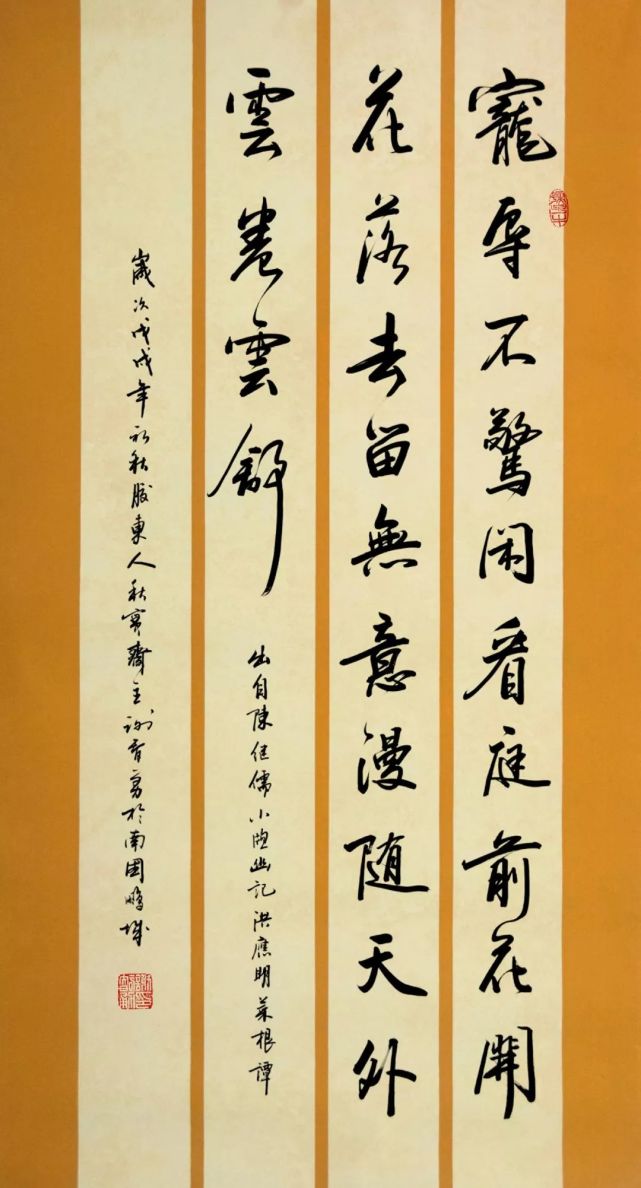 寵辱不驚閑看庭前花開
花落去留無意漫随天外
雲卷雲舒
出自陳继儒小窗幽記洪應明菜根譚
歲次戊戌年初秋膠東人秋實齋主於南國鵬城